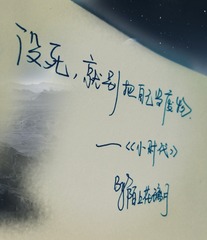 没死，就别把自己当废物.
——《小时代》
陌上花满月